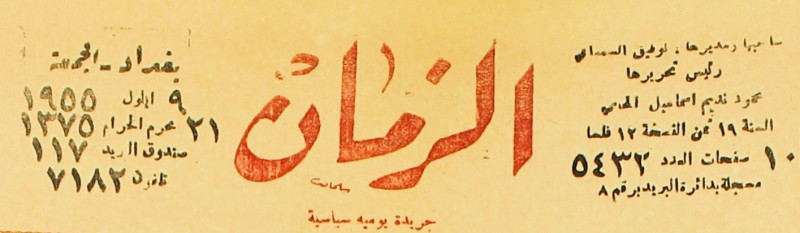 صاحبها ومديرها : توفيق السمعاني
رئيس تحريرها
محمود نديم اسماعيل المحامي
السنة ١٩ ثمن النسخة ١٢ فلسا
١٠ صفحات العدد ٥٤٣٢
مسجلة بدائرة البريد برقم ٨
الزمان
جريدة يومية سياسية
بغداد - الجمعة
٩ ايلول ١٩٥٥
٢١ محرم الحرام ١٣٧٥
صندوق البريد ١١٧
تلفون ٧١٨٢